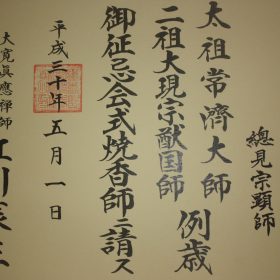 總見宗顕師
太祖常済大師
二祖大現宗猷国師
例歳
御征忌会式焼香師ニ請ス
平成三十年五月一日
大寛眞應禅師
江川辰三